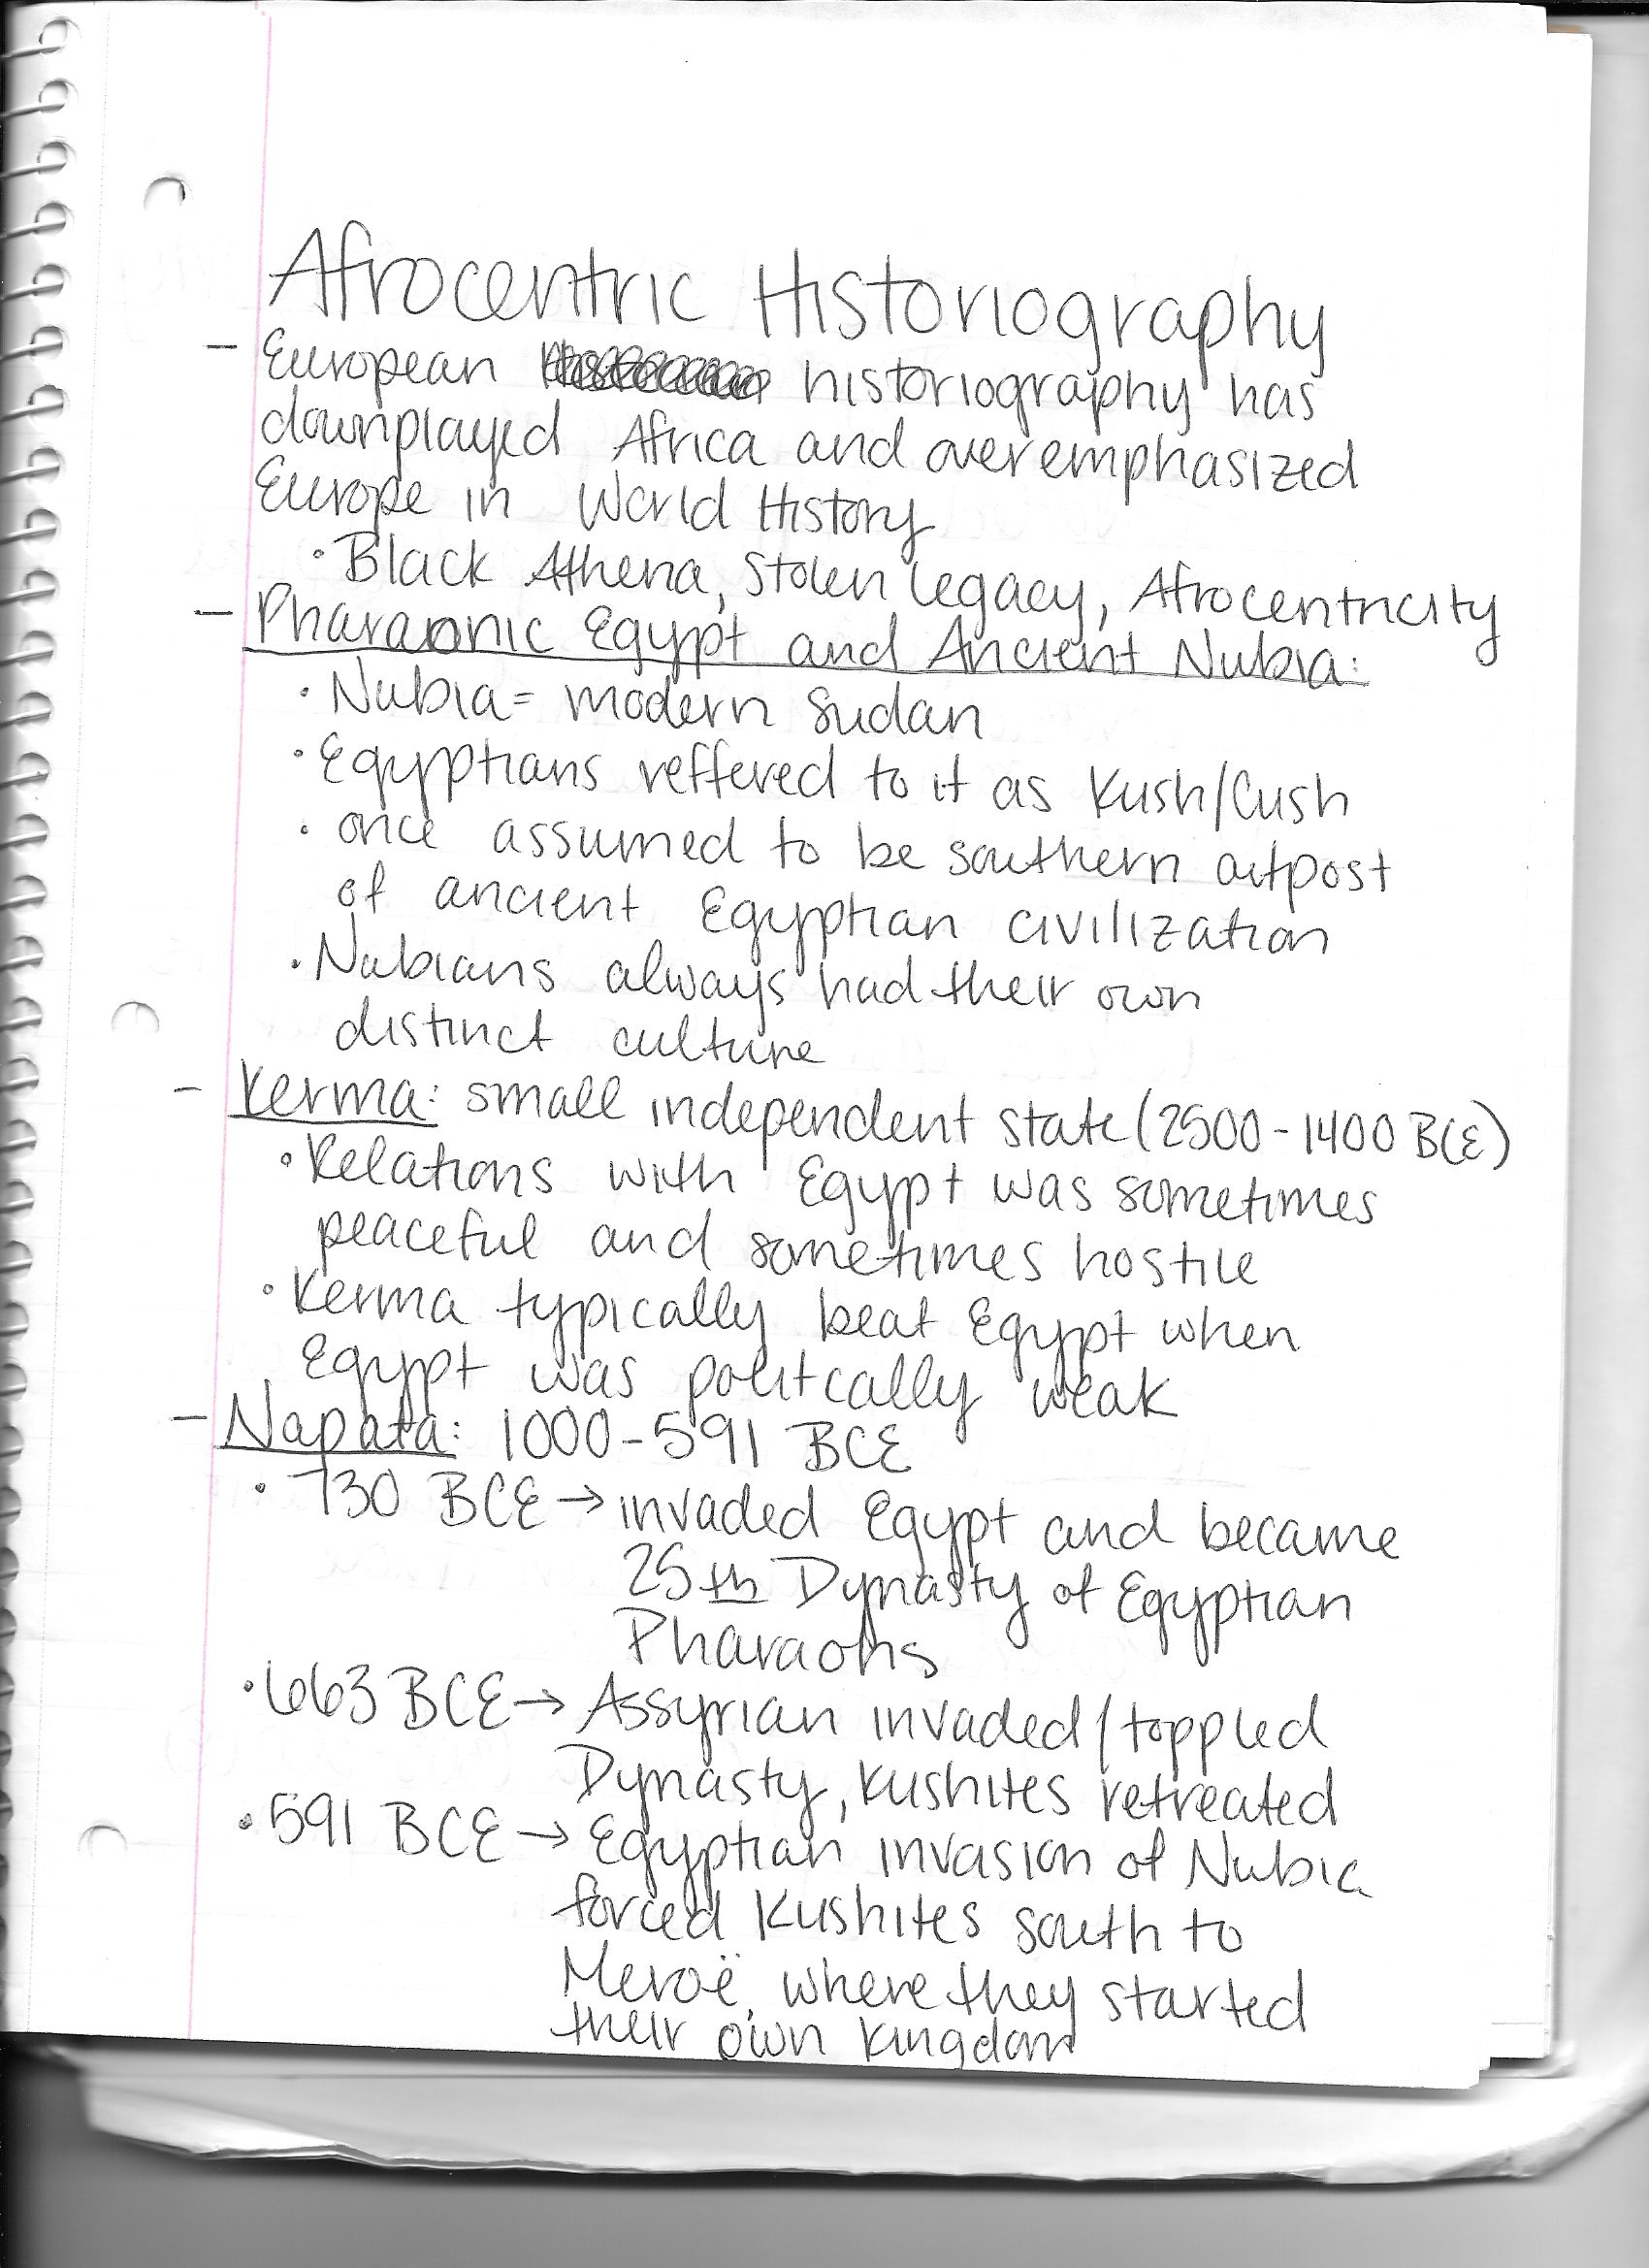 Afrocentric Historiography
- European historiography has
downplayed Africa and overemphasized
Europe in World History
• Black Athena, Stolen Legacy, Afrocentricity
- Pharaonic Egypt and Ancient Nubia:
• Nubia = modern Sudan
• Egyptians reffered to it as Kush/Cush
• once assumed to be southern outpost
of ancient Egyptian civilization
• Nubians always had their own
distinct culture
- Kerma: small independent state (2500-1400 BCE)
• Relations with Egypt was sometimes
peaceful and sometimes hostile
• Kerma typically beat Egypt when
Egypt was politcally weak
- Napata: 1000-591 BCE
• 730 BCE → invaded Egypt and became
25th Dynasty of Egyptian
Pharaohs
• 663 BCE → Assyrian invaded/toppled
Dynasty, Kushites retreated
• 591 BCE → Egyptian invasion of Nubia
forced Kushites south to
Meroë, where they started
their own kingdom